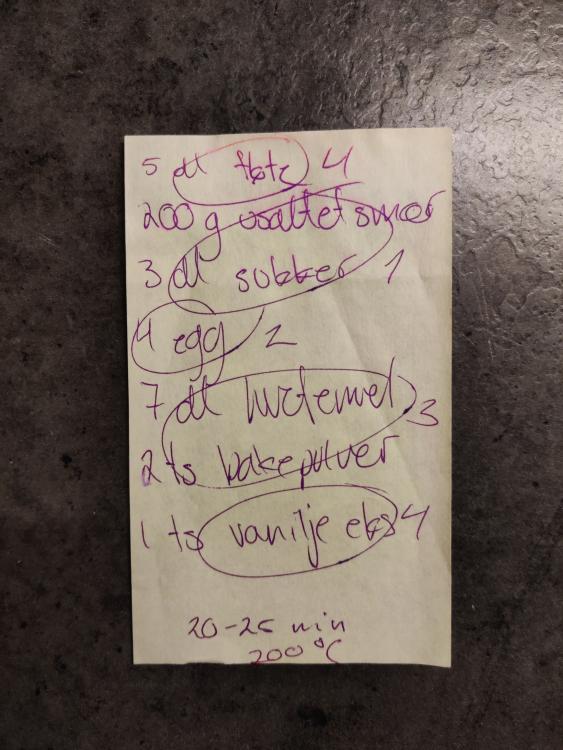 5 dl fløte 4
200 g usaltet smør
3 dl sukker 1
4 egg 2
7 dl hvetemel
3
2 ts bakepulver
1 ts vanilje eks 4
20-25 min
200 °C